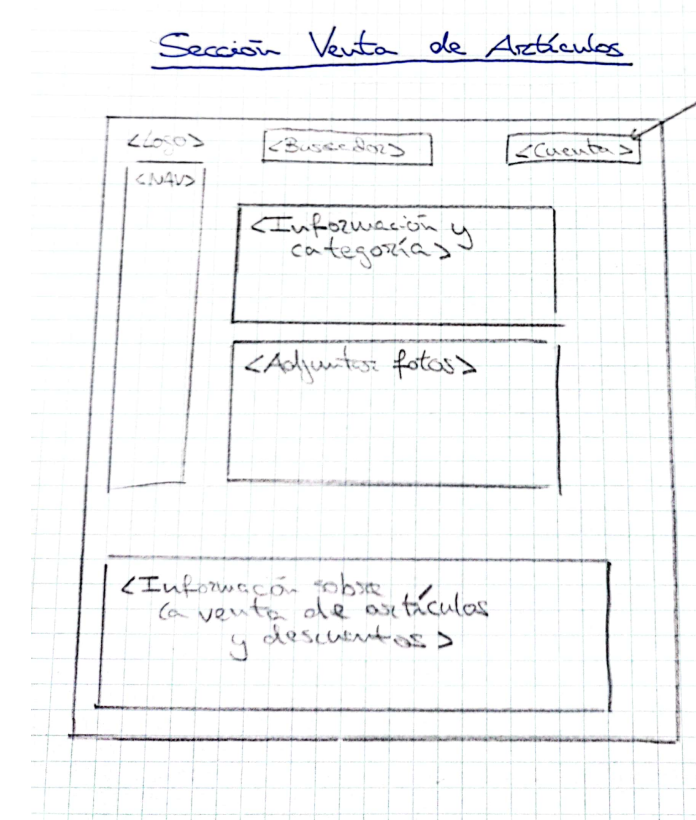 Sección Venta de Artículos
<Logo>
<Buscador>
<Cuenta>
<NAV>
<Información y
categoría>
<Adjuntar fotos>
<Informacón sobre
la venta de artículos
y descuentos>